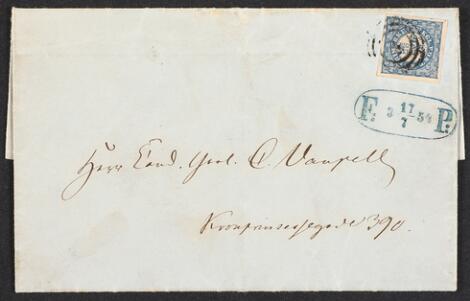 F: 3 17/7 54 P:
Herr Cand. Theol. C. Vaupell
Kronprinsessegade 390.